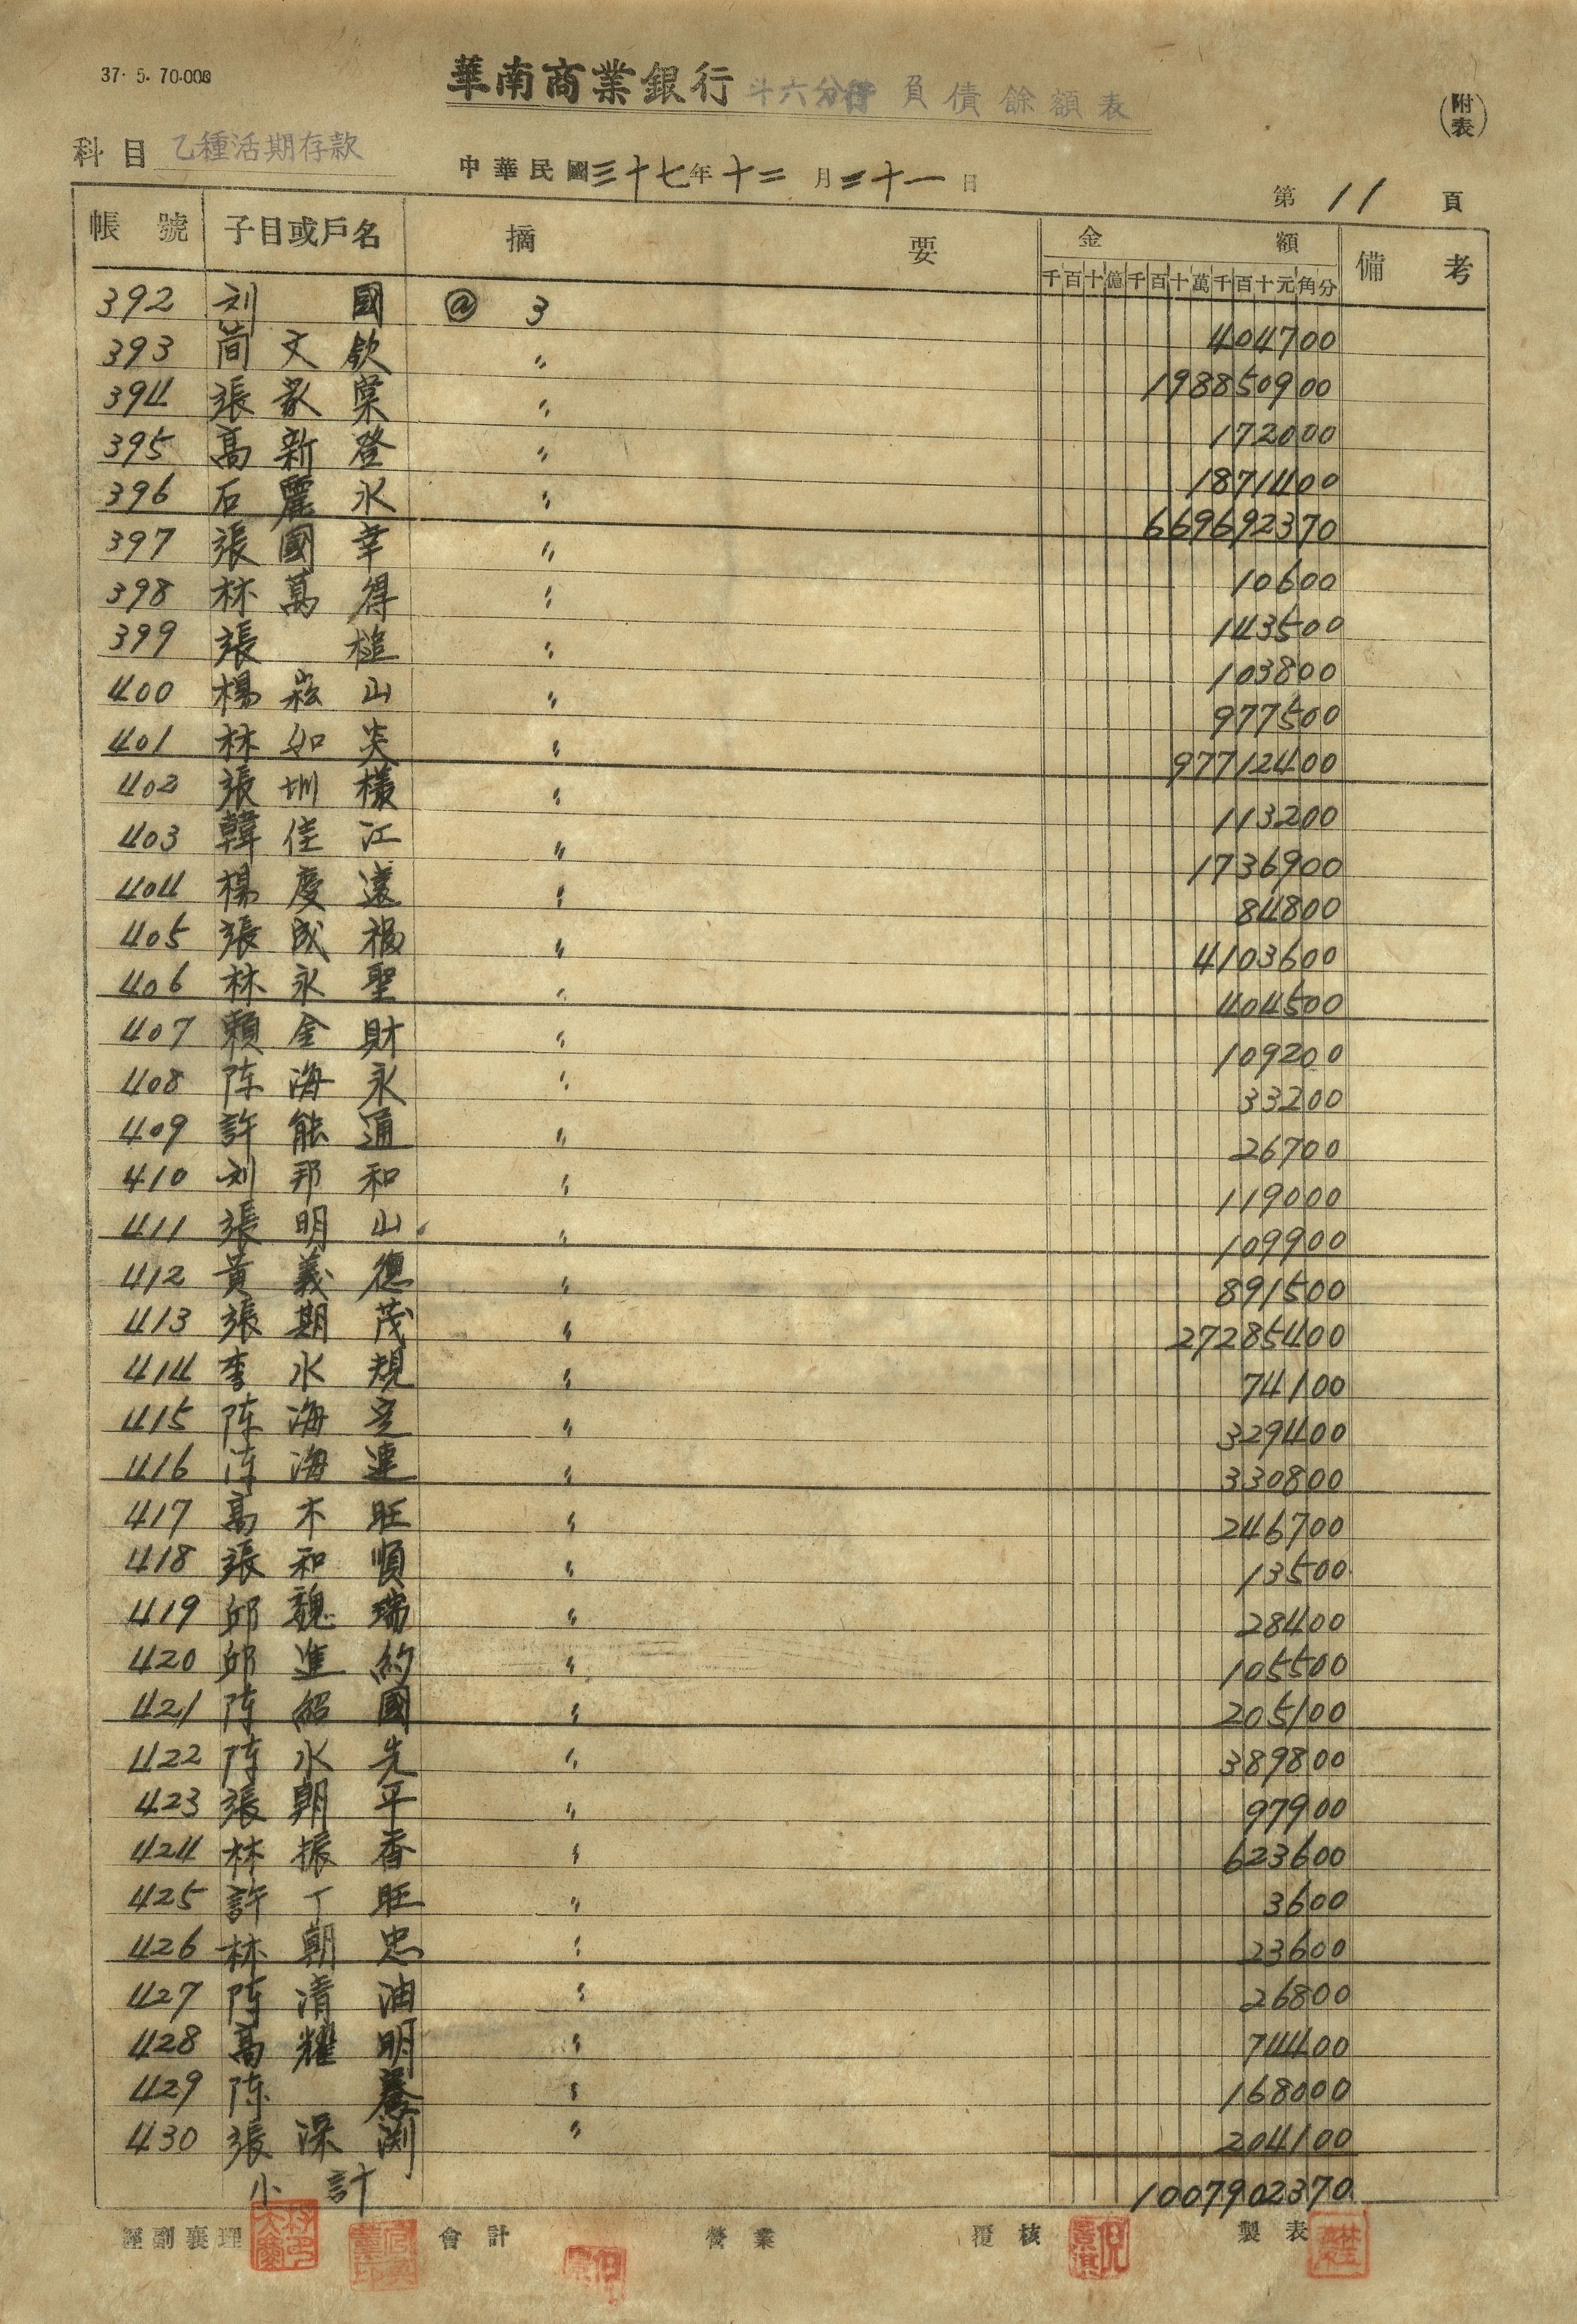 37. 5. 70.000
華南商業銀行 斗六分行 負債餘額表
(附表)
科目 乙種活期存款
中華民國三十七年十二月三十一日
第 11 頁
帳號 子目或戶名 摘要 金額 備考
千百十億千百十萬千百十元角分
392 刘國 @ 3 404700
393 简文欽 〃 198850900
394 張棠 〃 172000
395 高新登 〃 1871400
396 石麗水 〃 669692370
397 張國幸 〃 10600
398 林萬得 〃 143500
399 張槌 〃 103800
400 楊崧山 〃 977500
401 林如炎 〃 97712400
402 張圳樣 〃 113200
403 韓佳江 〃 1736900
404 楊慶遠 〃 84800
405 張成福 〃 4103600
406 林永聖 〃 404500
407 賴金財 〃 109200
408 陈海永 〃 33200
409 許能通 〃 26700
410 刘邦和 〃 119000
411 張明山 〃 109900
412 黃義德 〃 891500
413 張期茂 〃 27285400
414 李水規 〃 74100
415 陈海 〃 329400
416 陈海連 〃 330800
417 高木旺 〃 246700
418 張和順 〃 13500
419 邱魏瑞 〃 28400
420 邱進約 〃 105500
421 陈紹國 〃 205100
422 陈水先 〃 389800
423 張朝平 〃 97900
424 林振香 〃 623600
425 許丁旺 〃 3600
426 林朝忠 〃 23600
427 陈清油 〃 26800
428 高耀明 〃 74400
429 陈養 〃 168000
430 張深渊 〃 204100
小計 1007902370
經副襄理 會計 營業 覆核 製表